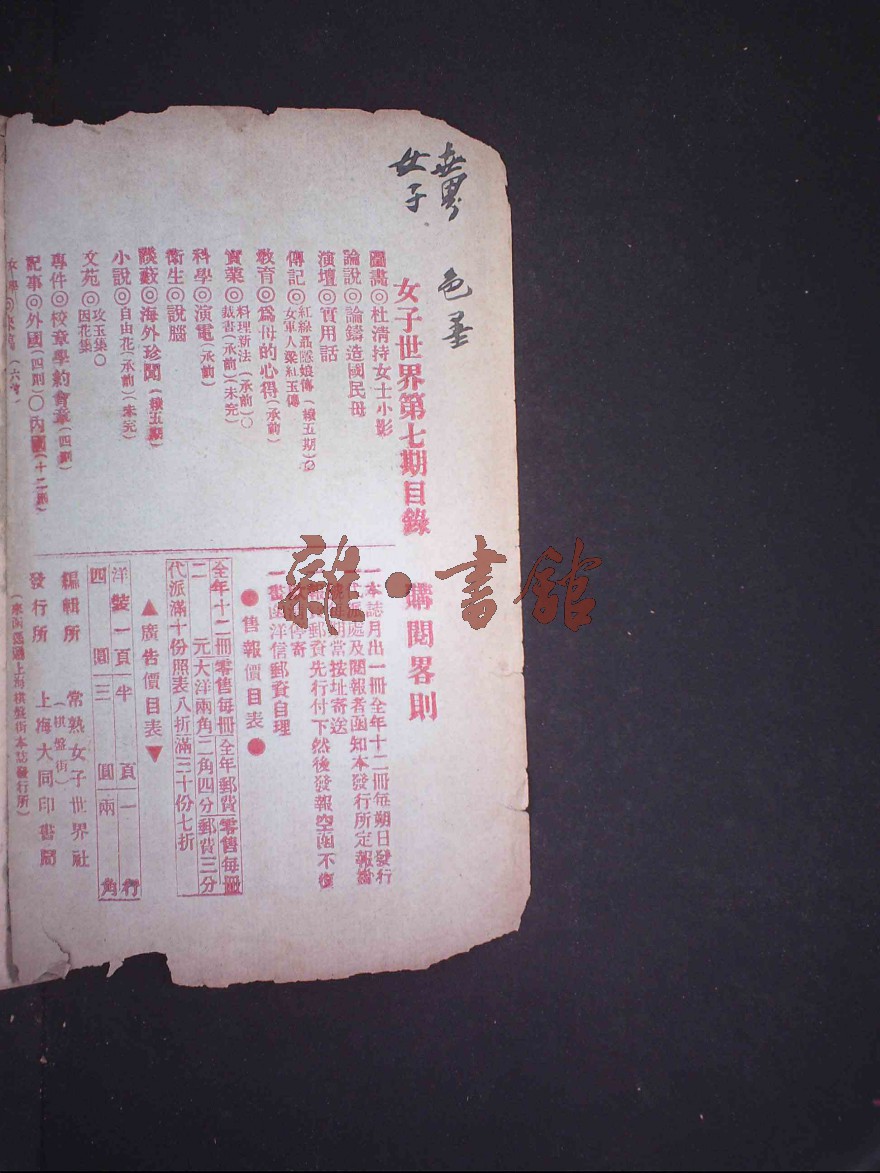 世界
女子
色墨
女子世界第七期目錄
圖畫◎杜清持女士小影
論說◎論鑄造國民母
演壇◎實用話
傳記◎紅線聶隱娘傳(續五期)◎女軍人梁紅玉傳
教育◎爲母的心得(承前)
實業◎料理新法(承前)○裁書(承前)(未完)
科學◎演電(承前)
衛生◎說腦
談藪◎海外珍聞(續五期)
小說◎自由花(承前)(未完)
文苑◎攻玉集○因花集
專件◎校章學約會章(四則)
記事◎外國(四則)○內國(十二則)
購閱畧則
一本誌月出一冊全年十二冊每朔日發行
處及閱報者函知本發行所定報
期當按址寄送
郵資先行付下然後發報空函不復
停寄
一書函洋信郵資自理
●售報價目表●
全年十二冊 零售每冊 全年郵費 零售每冊
二元大洋兩角 二角四分 郵費三分
代派滿十份照表八折滿三十份七折
▲廣告價目表▼
洋裝一頁 半頁 一行
四圓 三圓 兩角
編輯所 常熟女子世界社
(棋盤街)
發行所 上海大同印書局
雜·書館